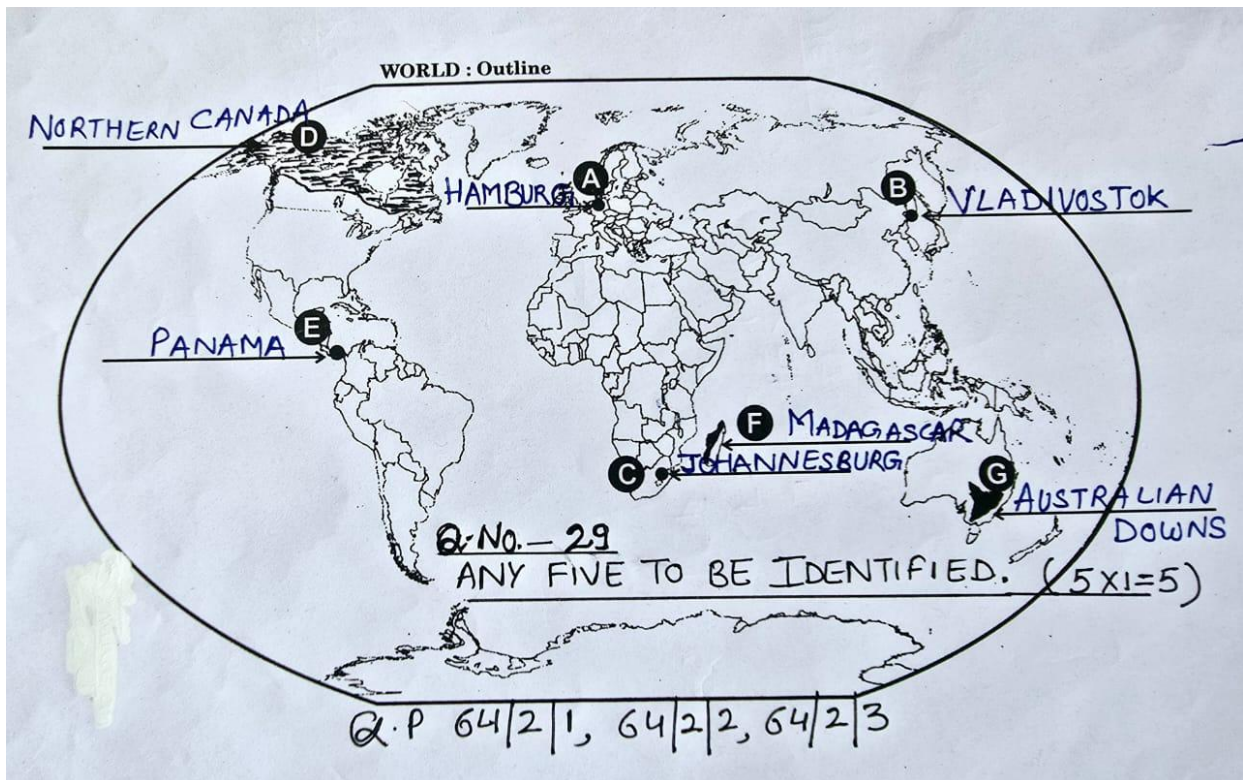 WORLD : Outline
NORTHERN CANADA
D
A
HAMBURG
B
VLADIVOSTOK
E
PANAMA
F
MADAGASCAR
C
JOHANNESBURG
G
AUSTRALIAN
DOWNS
Q.No. - 29
ANY FIVE TO BE IDENTIFIED. (5X1=5)
Q.P 64/2/1, 64/2/2, 64/2/3